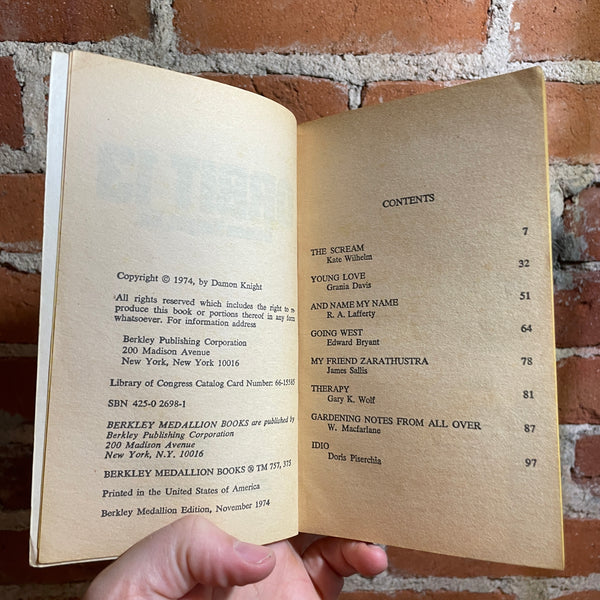 Copyright © 1974, by Damon Knight
All rights reserved which includes the right to re-
produce this book or portions thereof in any form
whatsoever. For information address
Berkley Publishing Corporation
200 Madison Avenue
New York, New York 10016
Library of Congress Catalog Card Number: 66-15585
SBN 425-0 2698-1
BERKLEY MEDALLION BOOKS are published by
Berkley Publishing Corporation
200 Madison Avenue
New York, N.Y. 10016
BERKLEY MEDALLION BOOKS ® TM 757, 375
Printed in the United States of America
Berkley Medallion Edition, November 1974
CONTENTS
THE SCREAM 7
Kate Wilhelm
YOUNG LOVE 32
Grania Davis
AND NAME MY NAME 51
R. A. Lafferty
GOING WEST 64
Edward Bryant
MY FRIEND ZARATHUSTRA 78
James Sallis
THERAPY 81
Gary K. Wolf
GARDENING NOTES FROM ALL OVER 87
W. Macfarlane
IDIO 97
Doris Piserchia